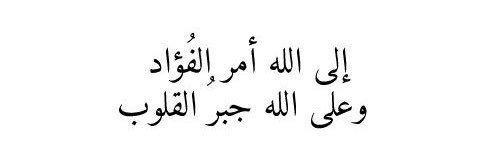 إلى الله أمر الفُؤاد
وعلى الله جبرُ القلوب